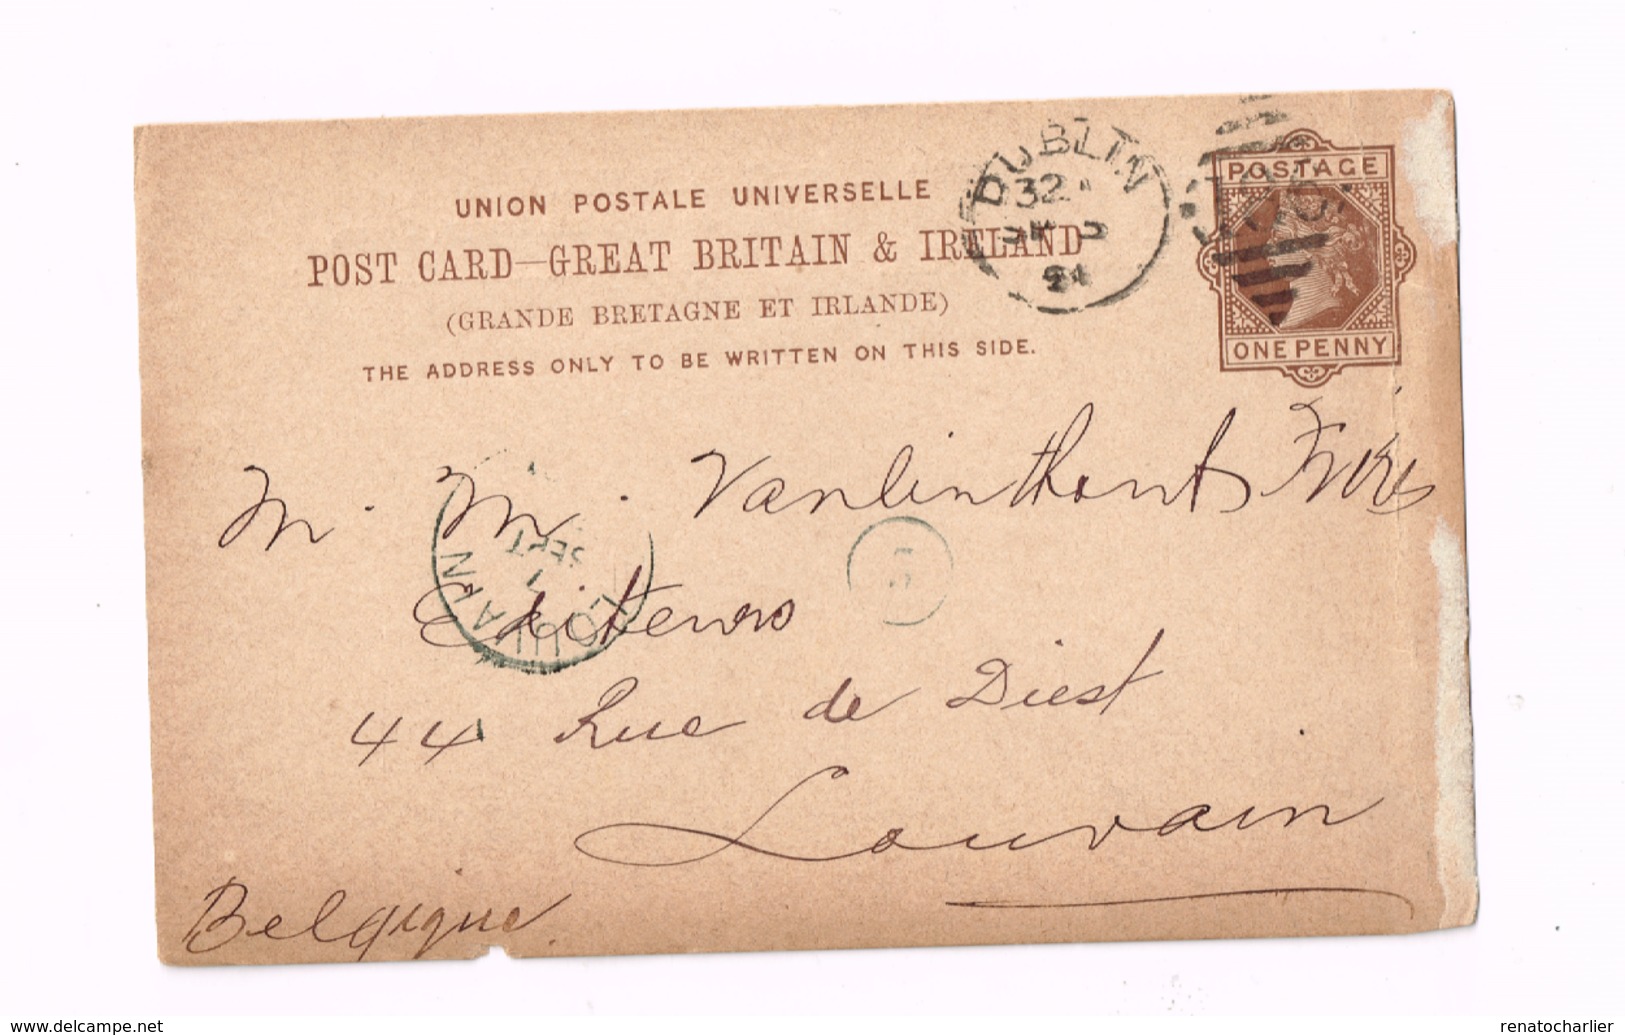 UNION POSTALE UNIVERSELLE
POST CARD—GREAT BRITAIN & IRELAND
(GRANDE BRETAGNE ET IRLANDE)
THE ADDRESS ONLY TO BE WRITTEN ON THIS SIDE.
DUBLIN
32
94
POSTAGE
ONE PENNY
M. M. Vanlinthouts Frères
Editeurs
LOUVAIN
SEPT
5
44 Rue de Diest
Louvain
Belgique
www.delcampe.net
renatocharlier